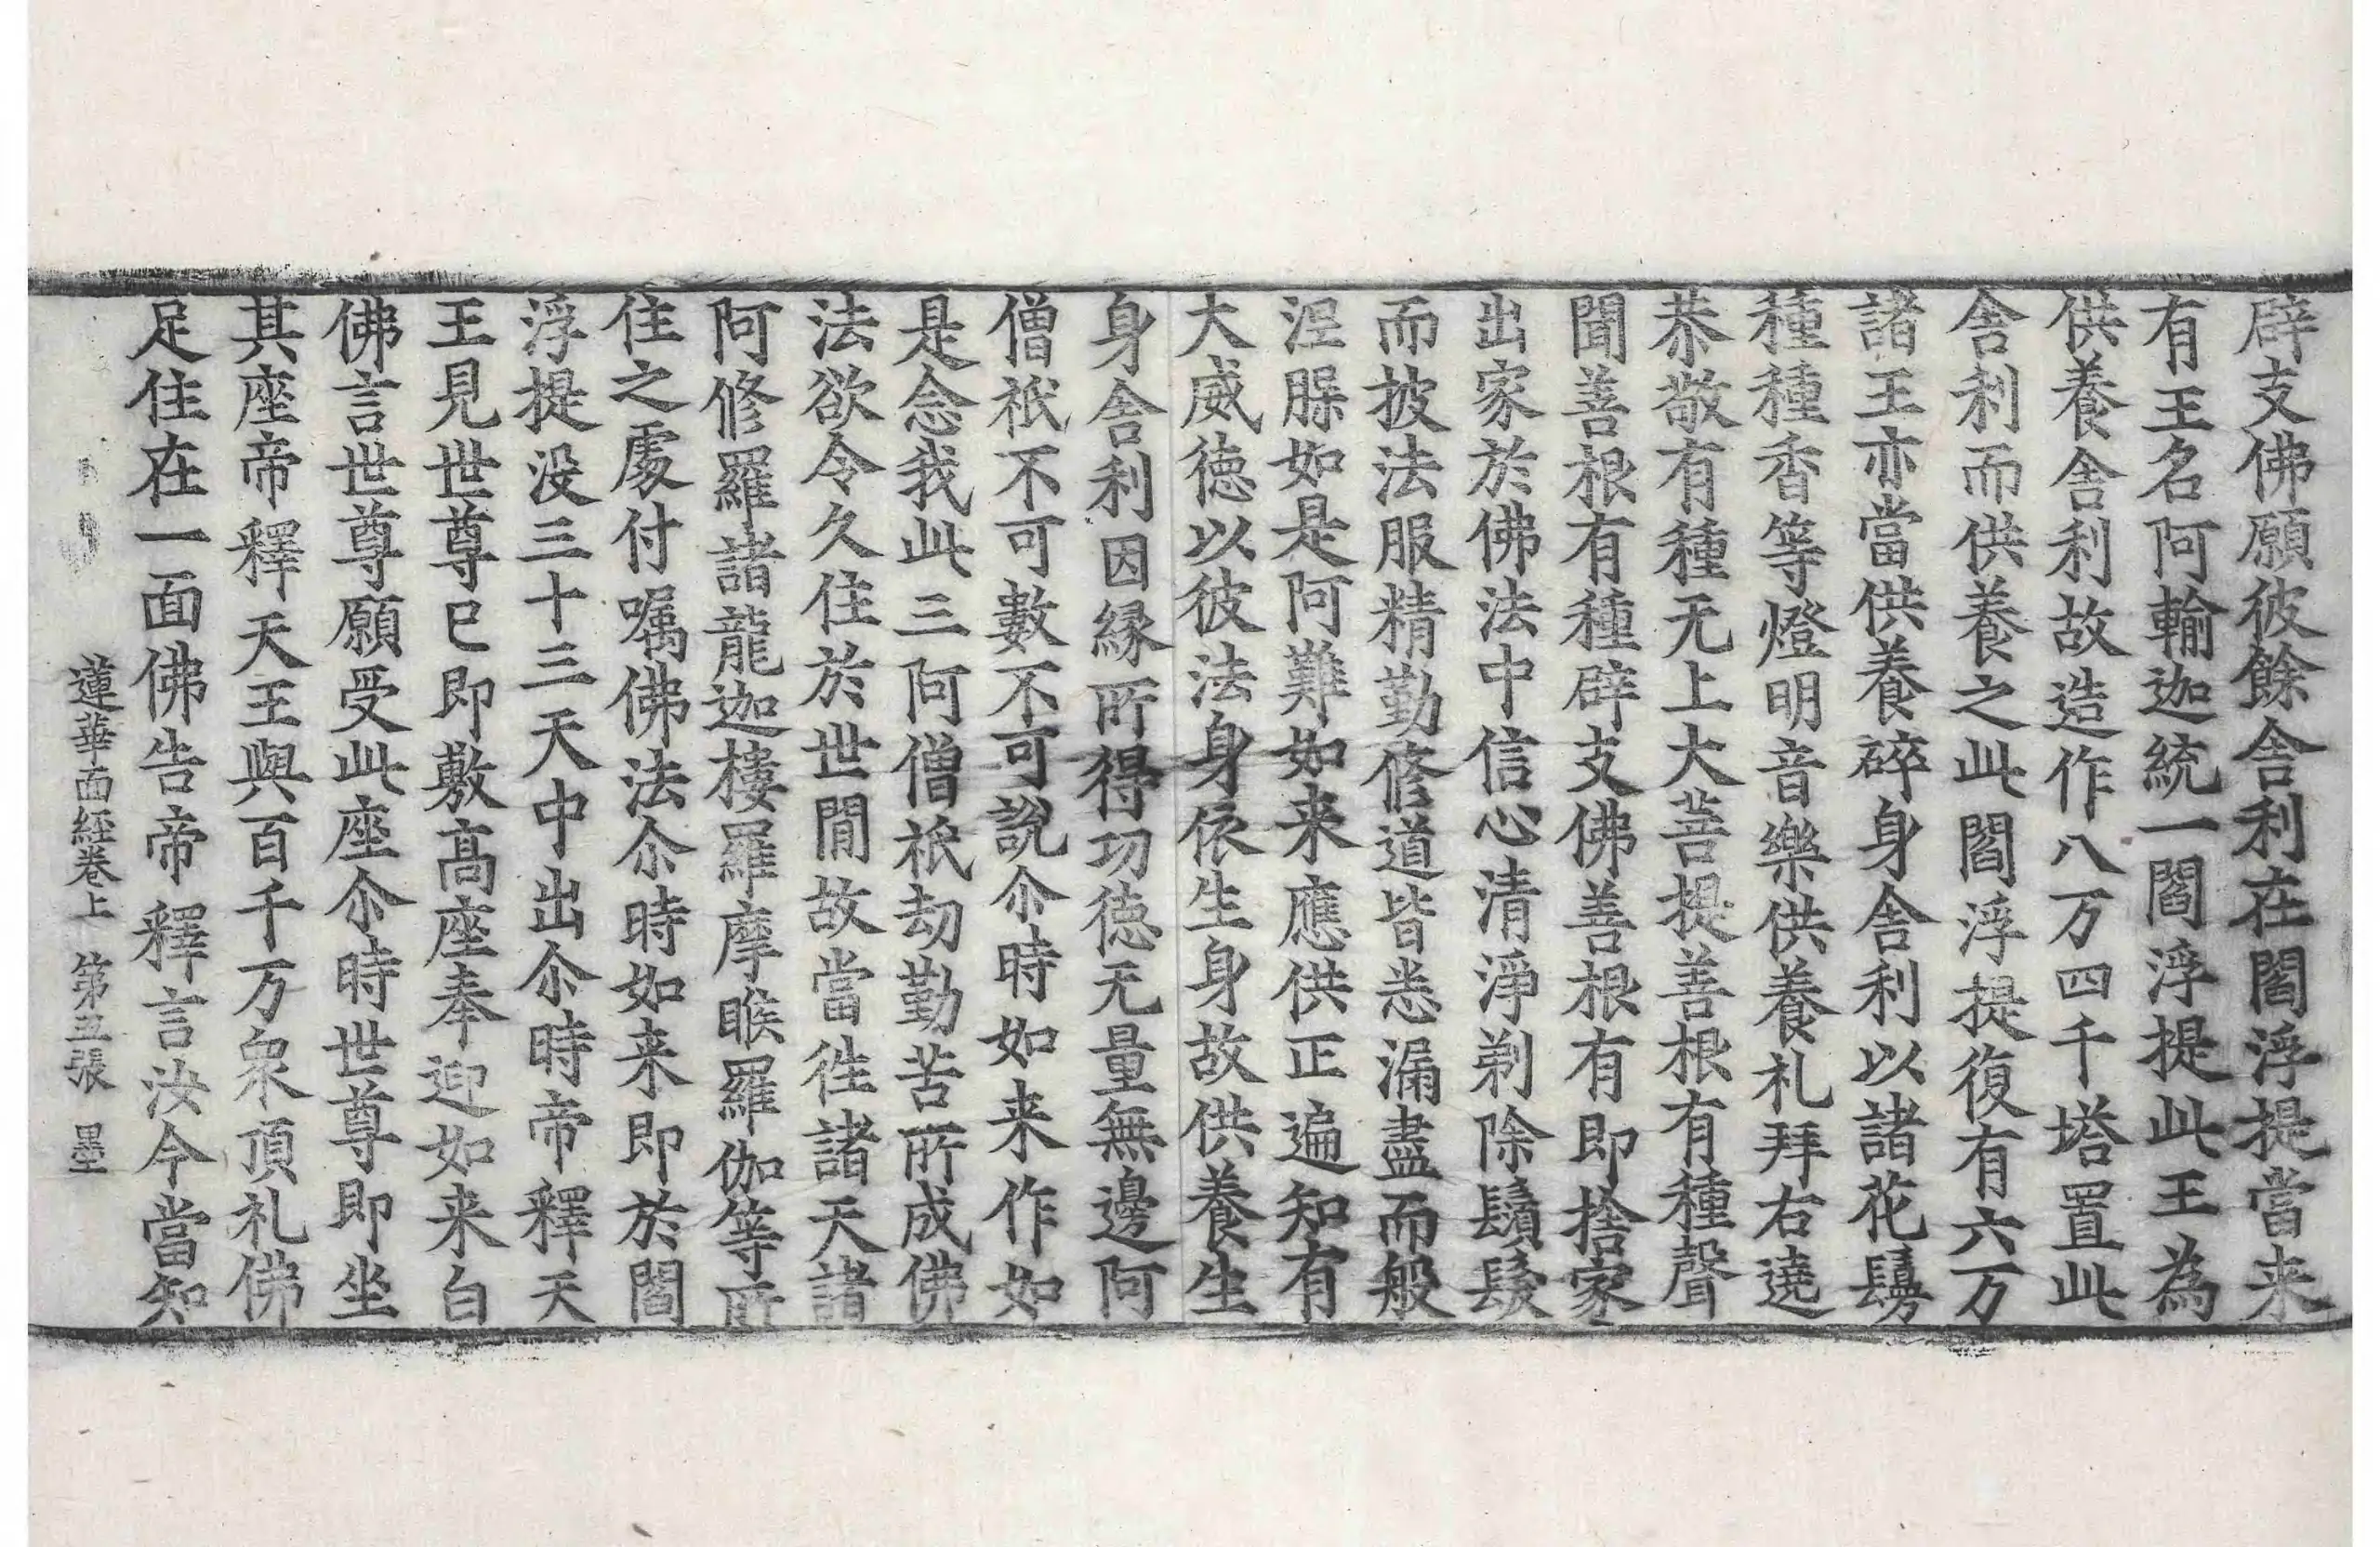 辟支佛願彼餘舍利在閻浮提當来
有王名阿輸迦統一閻浮提此王為
供養舍利故造作八万四千塔置此
舍利而供養之此閻浮提復有六万
諸王亦當供養碎身舍利以諸花鬘
種種香等燈明音樂供養礼拜右遶
恭敬有種无上大菩提善根有種聲
聞善根有種辟支佛善根有即捨家
出家於佛法中信心清淨剃除鬚髮
而披法服精勤修道皆悉漏盡而般
涅槃如是阿難如来應供正遍知有
大威徳以彼法身依生身故供養生
身舍利因縁所得功徳无量無邊阿
僧祇不可數不可說尒時如来作如
是念我此三阿僧祇劫勤苦所成佛
法欲令久住於世間故當往諸天諸
阿修羅諸龍迦樓羅摩睺羅伽等所
住之處付嘱佛法尒時如来即於閻
浮提没三十三天中出尒時帝釋天
王見世尊已即敷髙座奉迎如来白
佛言世尊願受此座尒時世尊即坐
其座帝釋天王與百千万衆頂礼佛
足住在一面佛告帝釋言汝今當知
蓮華面經卷上　第五張　墨